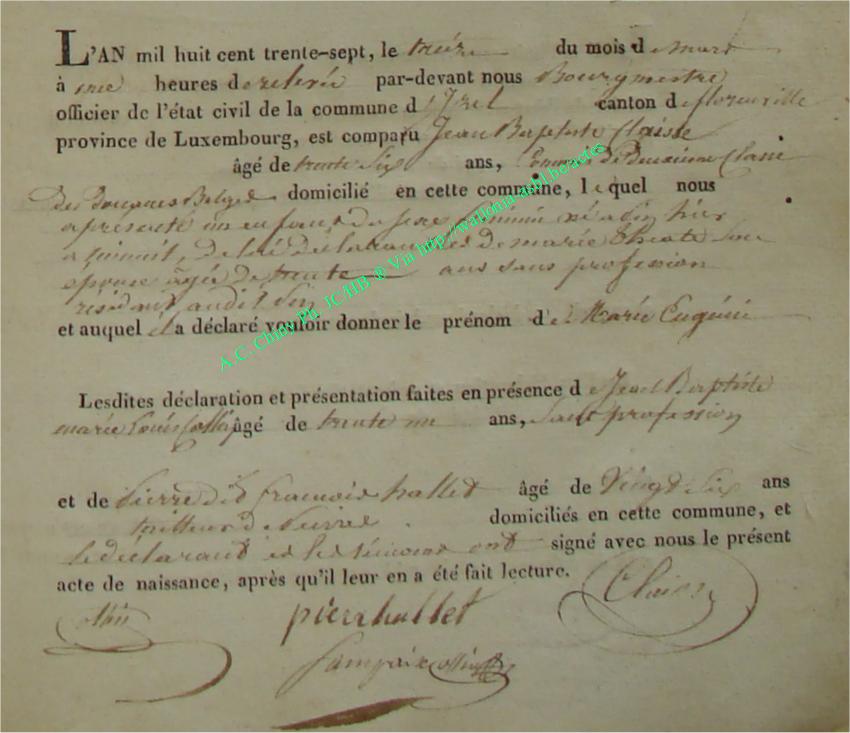 L'AN mil huit cent trente-sept, le treize du mois de mars
à une heures de relevée par-devant nous Bourgmestre
officier de l'état civil de la commune d'Izel canton de florenville
province de Luxembourg, est comparu Jean Baptiste Claisse
âgé de trente Six ans, Commis de Deuxieme Classe
Des Douanes Belges domicilié en cette commune, lequel nous
a présenté un enfant du Sexe feminin né a Pin hier
a minuit, De lui déclarant et De marie Son
épouse agée De trente ans sans profession
résidant audit Pin
et auquel il a déclaré vouloir donner le prénom de Marie Eugénie
Lesdites déclaration et présentation faites en présence de Jean Baptiste
marie Louis Collin âgé de trente un ans, Sans profession
et de Pierre dit francois hallet âgé de Vingt Six ans
tailleur de Pierre domiciliés en cette commune, et
le déclarant et les témoins ont signé avec nous le présent
acte de naissance, après qu'il leur en a été fait lecture.
Collin pierr hallet Claisse
A.C. Chiny Ph. JC/HB ® Via http://wallonia-asbl.be/actes